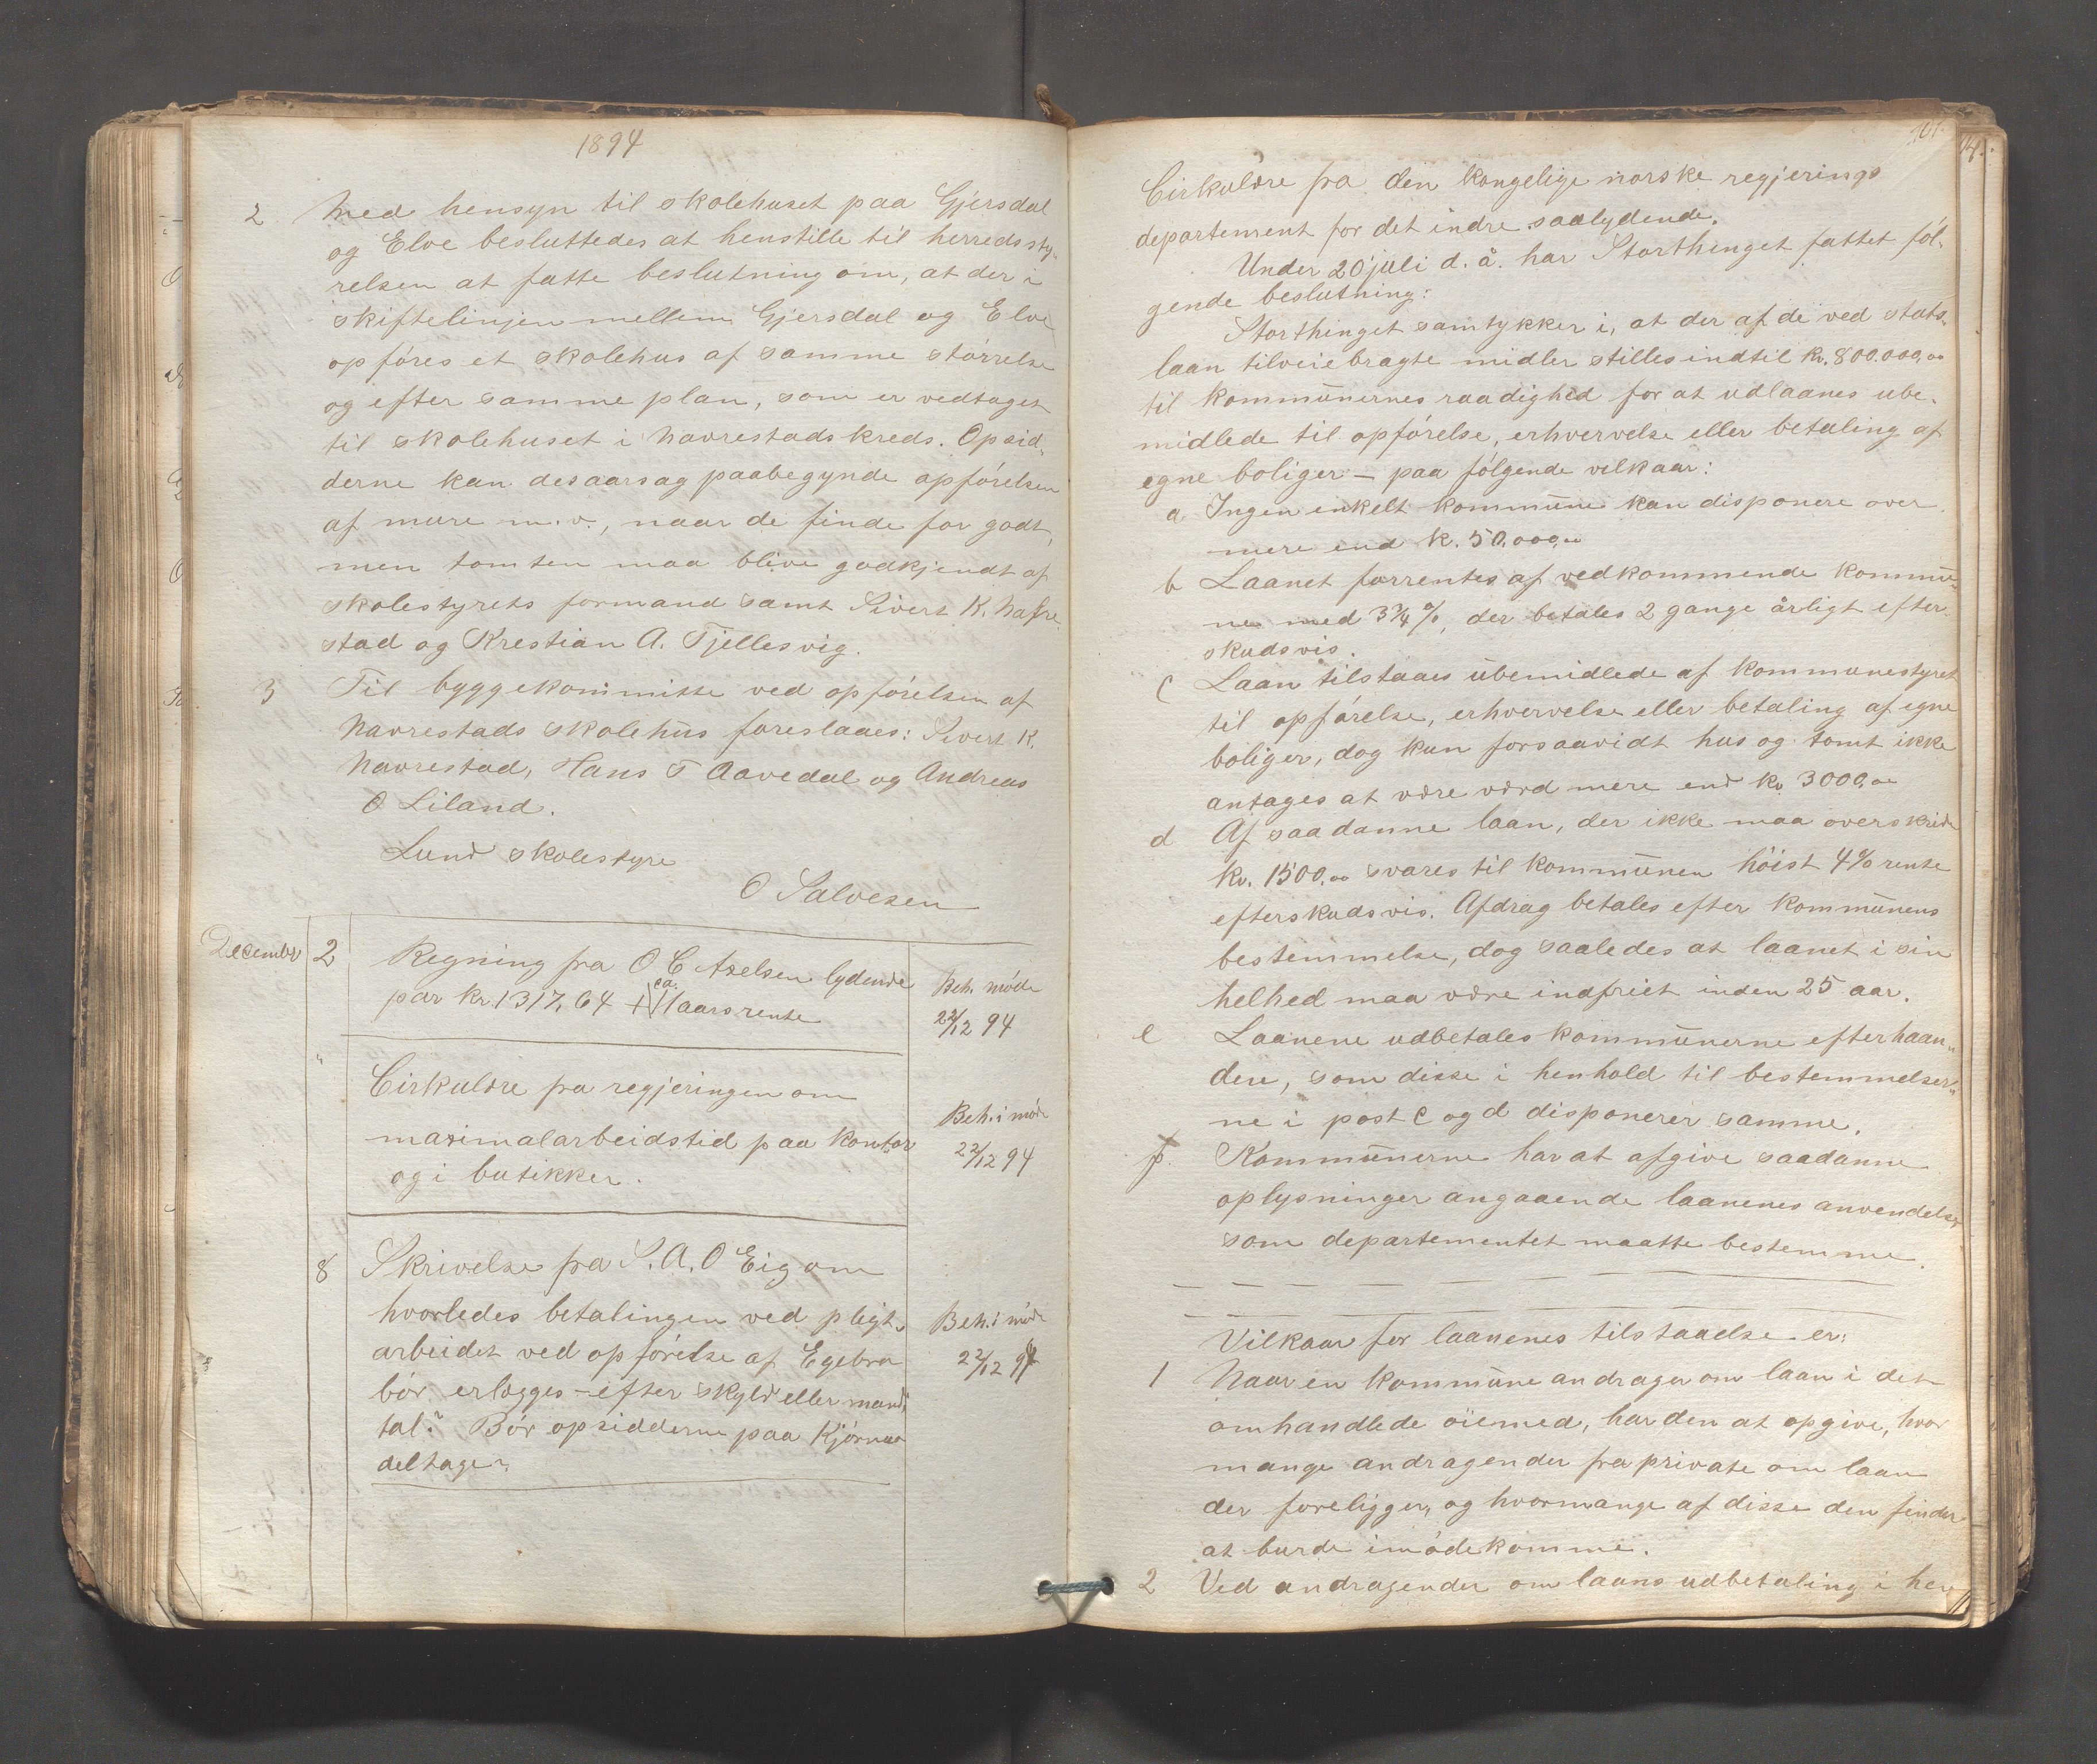 1894
2 Med hensyn til skolehuset paa Gjersdal
og Elve besluttedes at henstille til herredssty„
relsen at fatte beslutning om, at der i
skiftelinjen mellem Gjersdal og Elve
opføres et skolehus af samme størrelse
og efter samme plan, som er vedtaget
til skolehuset i Navrestads kreds. Opsid„
derne kan desaarsag paabegynde opførelsen
af mure m.v., naar de finde for godt,
men tomten maa blive godkjendt af
skolestyrets formand samt Sivert K. Nafre
stad og Krestian A. Tjellesvig.
3 Til byggekommitte ved opførelsen af
Navrestads skolehus foreslaaes: Sivert K.
Navrestad, Hans T Aavedal og Andreas
O Liland.
Lund skolestyre
O Salvesen
December 2 Regning fra O C Axelsen lydende Beh. møde
par kr. 1317,64 + ca. 1 aars rente 22/12 94
" Cirkulære fra regjeringen om Beh. i møde
maximalarbeidstid paa kontor 22/12 94
og i butikker.
8 Skrivelse fra S. A. O Eig om
hvorledes betalingen ved pligt„ Beh. i møde
arbeidet ved opførelse af Egebro 22/12 94
bør erlægges – efter skyld eller mand„
tal? Bør opsidderne paa Kjørnes
deltage?
101.
Cirkulære fra den kongelige norske regjerings
departement for det indre saalydende.
Under 20 juli d. å. har Storthinget fattet føl„
gende beslutning:
Storthinget samtykker i, at der af de ved stats„
laan tilveiebragte midler stilles indtil kr. 800.000,00
til kommunernes raadighed for at udlaanes ube„
midlede til opførelse, erhvervelse eller betaling af
egne boliger – paa følgende vilkaar:
a Ingen enkelt kommune kan disponere over
mere end k. 50,000,00
b Laanet forrentes af vedkommende kommu„
ne med 3¾ %, der betales 2 gange årligt efter
skudsvis.
c Laan tilstaaes ubemidlede af kommunestyret
til opførelse, erhvervelse eller betaling af egne
boliger, dog kun forsaavidt hus og tomt ikke
antages at være værd mere end kr. 3000,00
d Af saadanne laan, der ikke maa overskride
kr. 1500,00 svares til kommunen høist 4% rente
efterskudsvis. Afdrag betales efter kommunens
bestemmelse, dog saaledes at laanet i sin
helhed maa være indfriet inden 25 aar.
e Laanene udbetales kommunerne efterhaan„
den, som disse i henhold til bestemmelser„
ne i post c og d disponerer samme.
f. Kommunerne har at afgive saadanne
oplysninger angaaende laanenes anvendelse,
som departementet maatte bestemme.
Vilkaar for laanenes tilstaaelse er:
1 Naar en kommune andrager om laan i det
omhandlede øiemed, har den at opgive, hvor
mange andragender fra private om laan
der foreligger, og hvormange af disse den finder
at burde imødekomme.
2 Ved andragender om laans udbetaling i hen